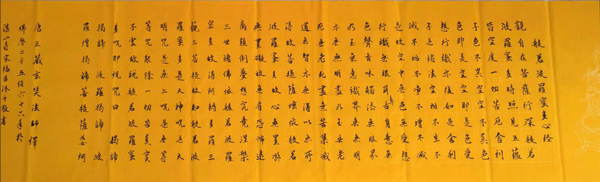 般若波羅蜜多心經
觀自在菩薩行深般若
波羅蜜多時照見五蘊
皆空度一切苦厄舍利
子色不異空空不異色
色即是空空即是色受
想行識亦復如是舍利
子是諸法空相不生不
滅不垢不淨不增不減
是故空中無色無受想
行識無眼耳鼻舌身意無
色聲香味觸法無眼界
乃至無意識界無無明
亦無無明盡乃至無老
死亦無老死盡無苦集滅
道無智亦無得以無所
得故菩提薩埵依般若
波羅蜜多故心無罣礙
無罣礙故無有恐怖遠
離顛倒夢想究竟涅槃
三世諸佛依般若波羅
蜜多故得阿耨多羅三
藐三菩提故知般若波
羅蜜多是大神咒是大
明咒是無上咒是無等
等咒能除一切苦真實
不虛故說般若波羅蜜
多咒即說咒曰 揭諦
揭諦 波羅揭諦 波
羅僧揭諦菩提薩婆訶
唐三藏玄奘法師譯
佛曆二千五百六十六年